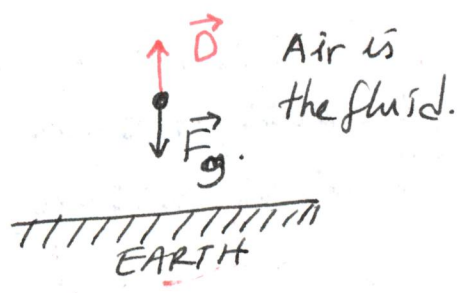 D
Air is
the fluid.
Fg.
EARTH